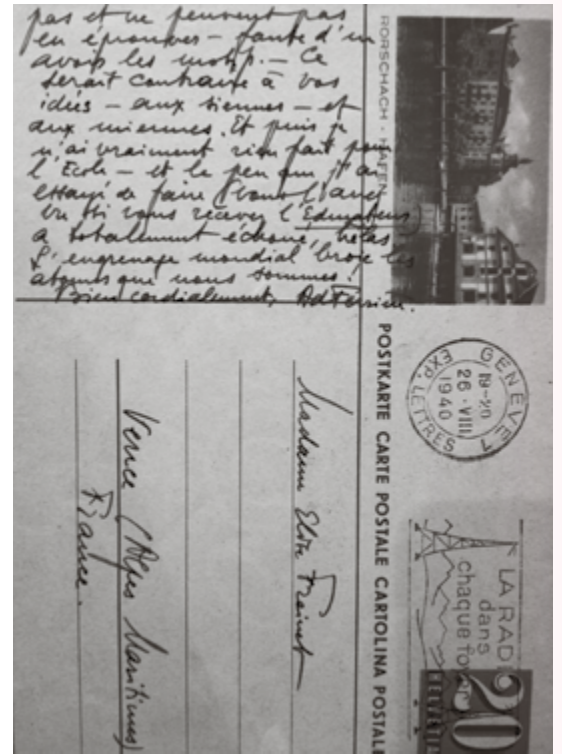 pas et ne peuvent pas
en éprouver – faute d'en
avoir les motifs. – Ce
serait contraire à vos
idées – aux siennes – et
aux miennes. Et puis je
n'ai vraiment rien fait pour
l'Ecole – et le peu que j'ai
essayé de faire (vous l'avez
vu si vous recevez l'Educateur)
a totalement échoué, hélas
L'engrenage mondial broie les
atomes que nous sommes!
Bien cordialement, Ad Ferrière.
RORSCHACH - HAFEN
POSTKARTE CARTE POSTALE CARTOLINA POSTALE
GENÈVE 1
19-20
26.VIII
1940
EXP. LETTRES
LA RADIO
dans
chaque foyer
20
HELVETIA
Madame Elise Freinet
Vence (Alpes Maritimes)
France.